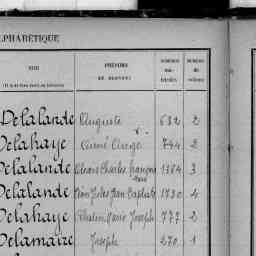 ALPHABÉTIQUE
NOM
PRÉNOMS
DU DÉCÉDÉ
NUMÉROS
NUMÉRO
Delalande Auguste 632 2
Delahaye Aimé Ange 744 2
Delalande Charles François 1384 3
Delalande Jean Jules Jean Baptiste 1730 4
Delahaye Marie Joseph 777 2
Delamaire Joseph 270 1